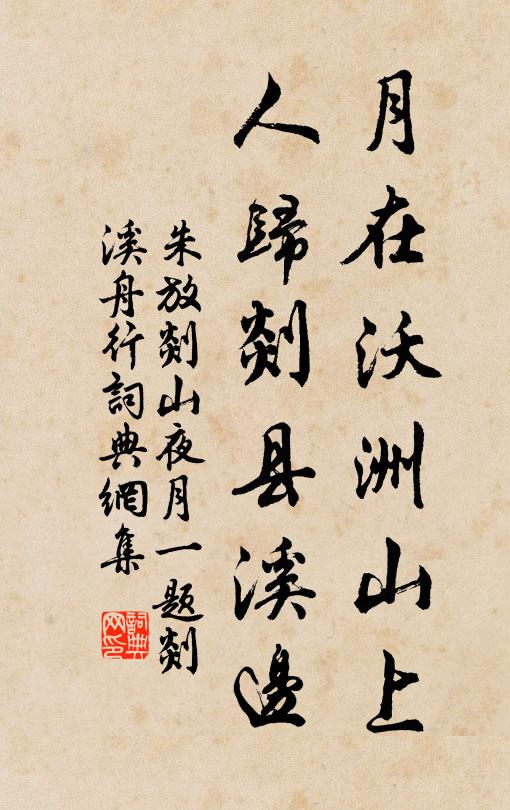 月在沃洲山上
人歸剡县溪邊
朱放剡山夜月一题剡
溪舟行詞典網集
詞典
网印